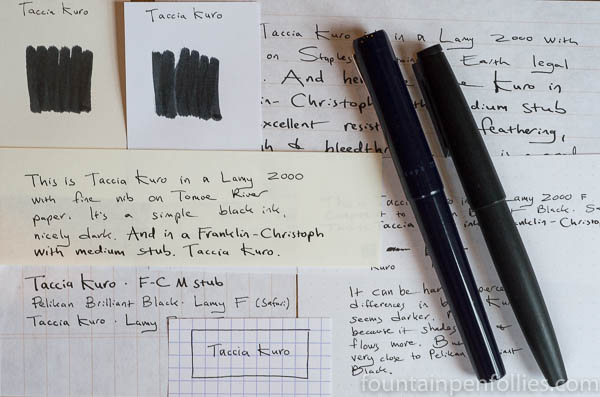 Taccia Kuro
Taccia Kuro
Taccia Kuro in a Lamy 2000 with
on Staples Earth legal
. And her Kuro in
in-Christoph medium stub
excellent resis feathering,
h & bleedthr
This is Taccia Kuro in a Lamy 2000
with fine nib on Tomoe River
paper. It's a simple black ink,
nicely dark. And in a Franklin-Christoph
with medium stub. Taccia Kuro.
Taccia Kuro · F-C M stub
Pelikan Brilliant Black · Lamy F (Safari)
Taccia Kuro · Lamy
Taccia Kuro
Lamy 2000 F
Black. Sa
Taccia in klin-Christo
Kuro
It can be har perce
differences in b Ku
seems darker.
because it shades
flows more. Bu
very close to Pelikan
Black.
fountainpenfollies.com